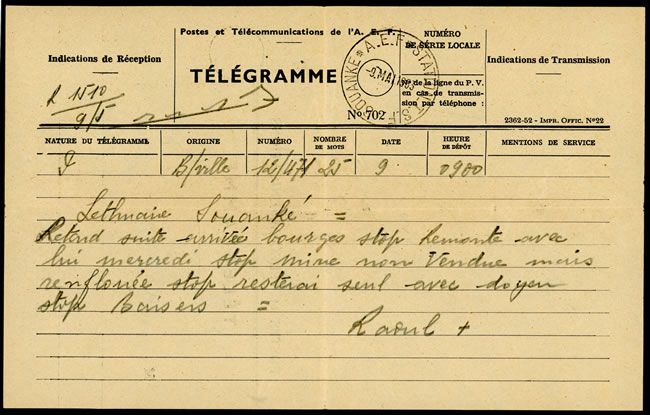 Postes et Télécommunications de l'A. E. F.
Indications de Réception
TÉLÉGRAMME
NUMÉRO
DE SÉRIE LOCALE
Indications de Transmission
No de la ligne du P. V.
en cas de transmis-
sion par téléphone :
R 1510
9/5
No 702
2362-52 - IMPR. OFFIC. N°22
NATURE DU TÉLÉGRAMME
ORIGINE
NUMÉRO
NOMBRE DE MOTS
DATE
HEURE DE DÉPÔT
MENTIONS DE SERVICE
P B/ville 12/471 25 9 0900
Souanké =
suite arrivée bourges stop Remonte avec
lui mercredi stop mine non vendue mais
renflouée stop resterai seul avec doyen
stop Baisers =
Raoul +